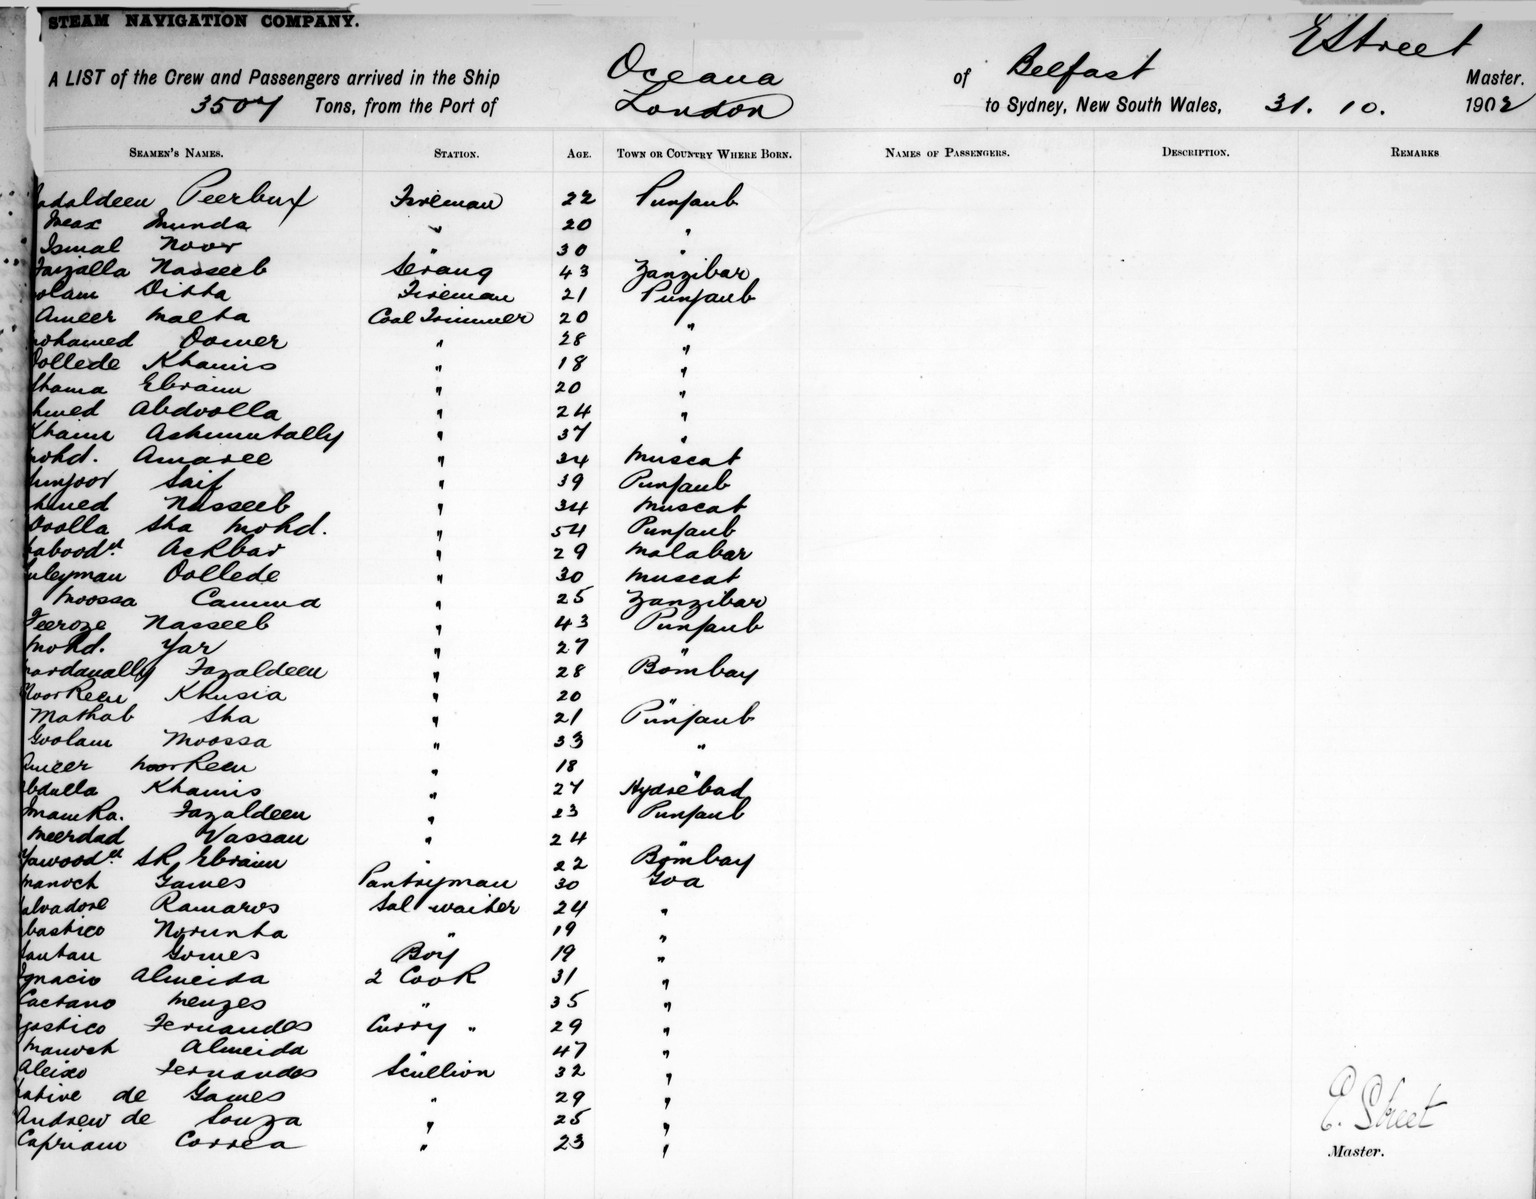 STEAM NAVIGATION COMPANY.
E Street
A LIST of the Crew and Passengers arrived in the Ship Oceana of Belfast Master.
3507 Tons, from the Port of London to Sydney, New South Wales, 31. 10. 1902
SEAMEN'S NAMES. STATION. AGE. TOWN OR COUNTRY WHERE BORN. NAMES OF PASSENGERS. DESCRIPTION. REMARKS
adaldeen Peerbux Fireman 22 Punjaub
Meax Munda " 20 "
Ismal Noor " 30 "
Faizalla Nasseeb Serang 43 Zanzibar
olam Ditta Fireman 21 Punjaub
Ameer Malta Coal Trimmer 20 "
ohamed Oomer " 28 "
Oollede Khamis " 18 "
Shama Ebraim " 20 "
hmed Abdoolla " 24 "
Khaim Ashmutally " 37 "
Mohd. Amaree " 34 Muscat
unjoor Saif " 39 Punjaub
hmed Nasseeb " 34 Muscat
Sha Mohd. " 54 Punjaub
Ackbar " 29 Malabar
uleyman Oollede " 30 Muscat
Moossa Camma " 25 Zanzibar
Feeroze Nasseeb " 43 Punjaub
Mohd. Yar " 27 "
Mardanally Fazaldeen " 28 Bombay
Noor Keen Khusia " 20 "
Mathab Sha " 21 Punjaub
Goolam Moossa " 33 "
Ameer Noor Keen " 18 "
bdulla Khamis " 27 Hydrebad
Fazaldeen " 23 Punjaub
Meerdad Vassau " 24 "
SK Ebraim " 22 Bombay
Manoch Games Pantryman 30 Goa
alvadore Ramaros Sal waiter 24 "
bastico Norunha " 19 "
antan Gomes Boy 19 "
Ignacio Almeida 2 Cook 31 "
Caetano Menzes " 35 "
gostico Fernandes Curry " 29 "
Manoch Almeida " 47 "
Aleixo Fernandes Scullion 32 "
ative de Games " 29 "
Andrew de Souza " 25 "
Capriam Correa " 23 "
E. Street
Master.